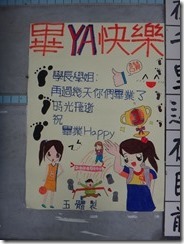 畢YA快樂
學長學姐:
再過幾天你們畢業了
時光飛逝
祝
畢業Happy